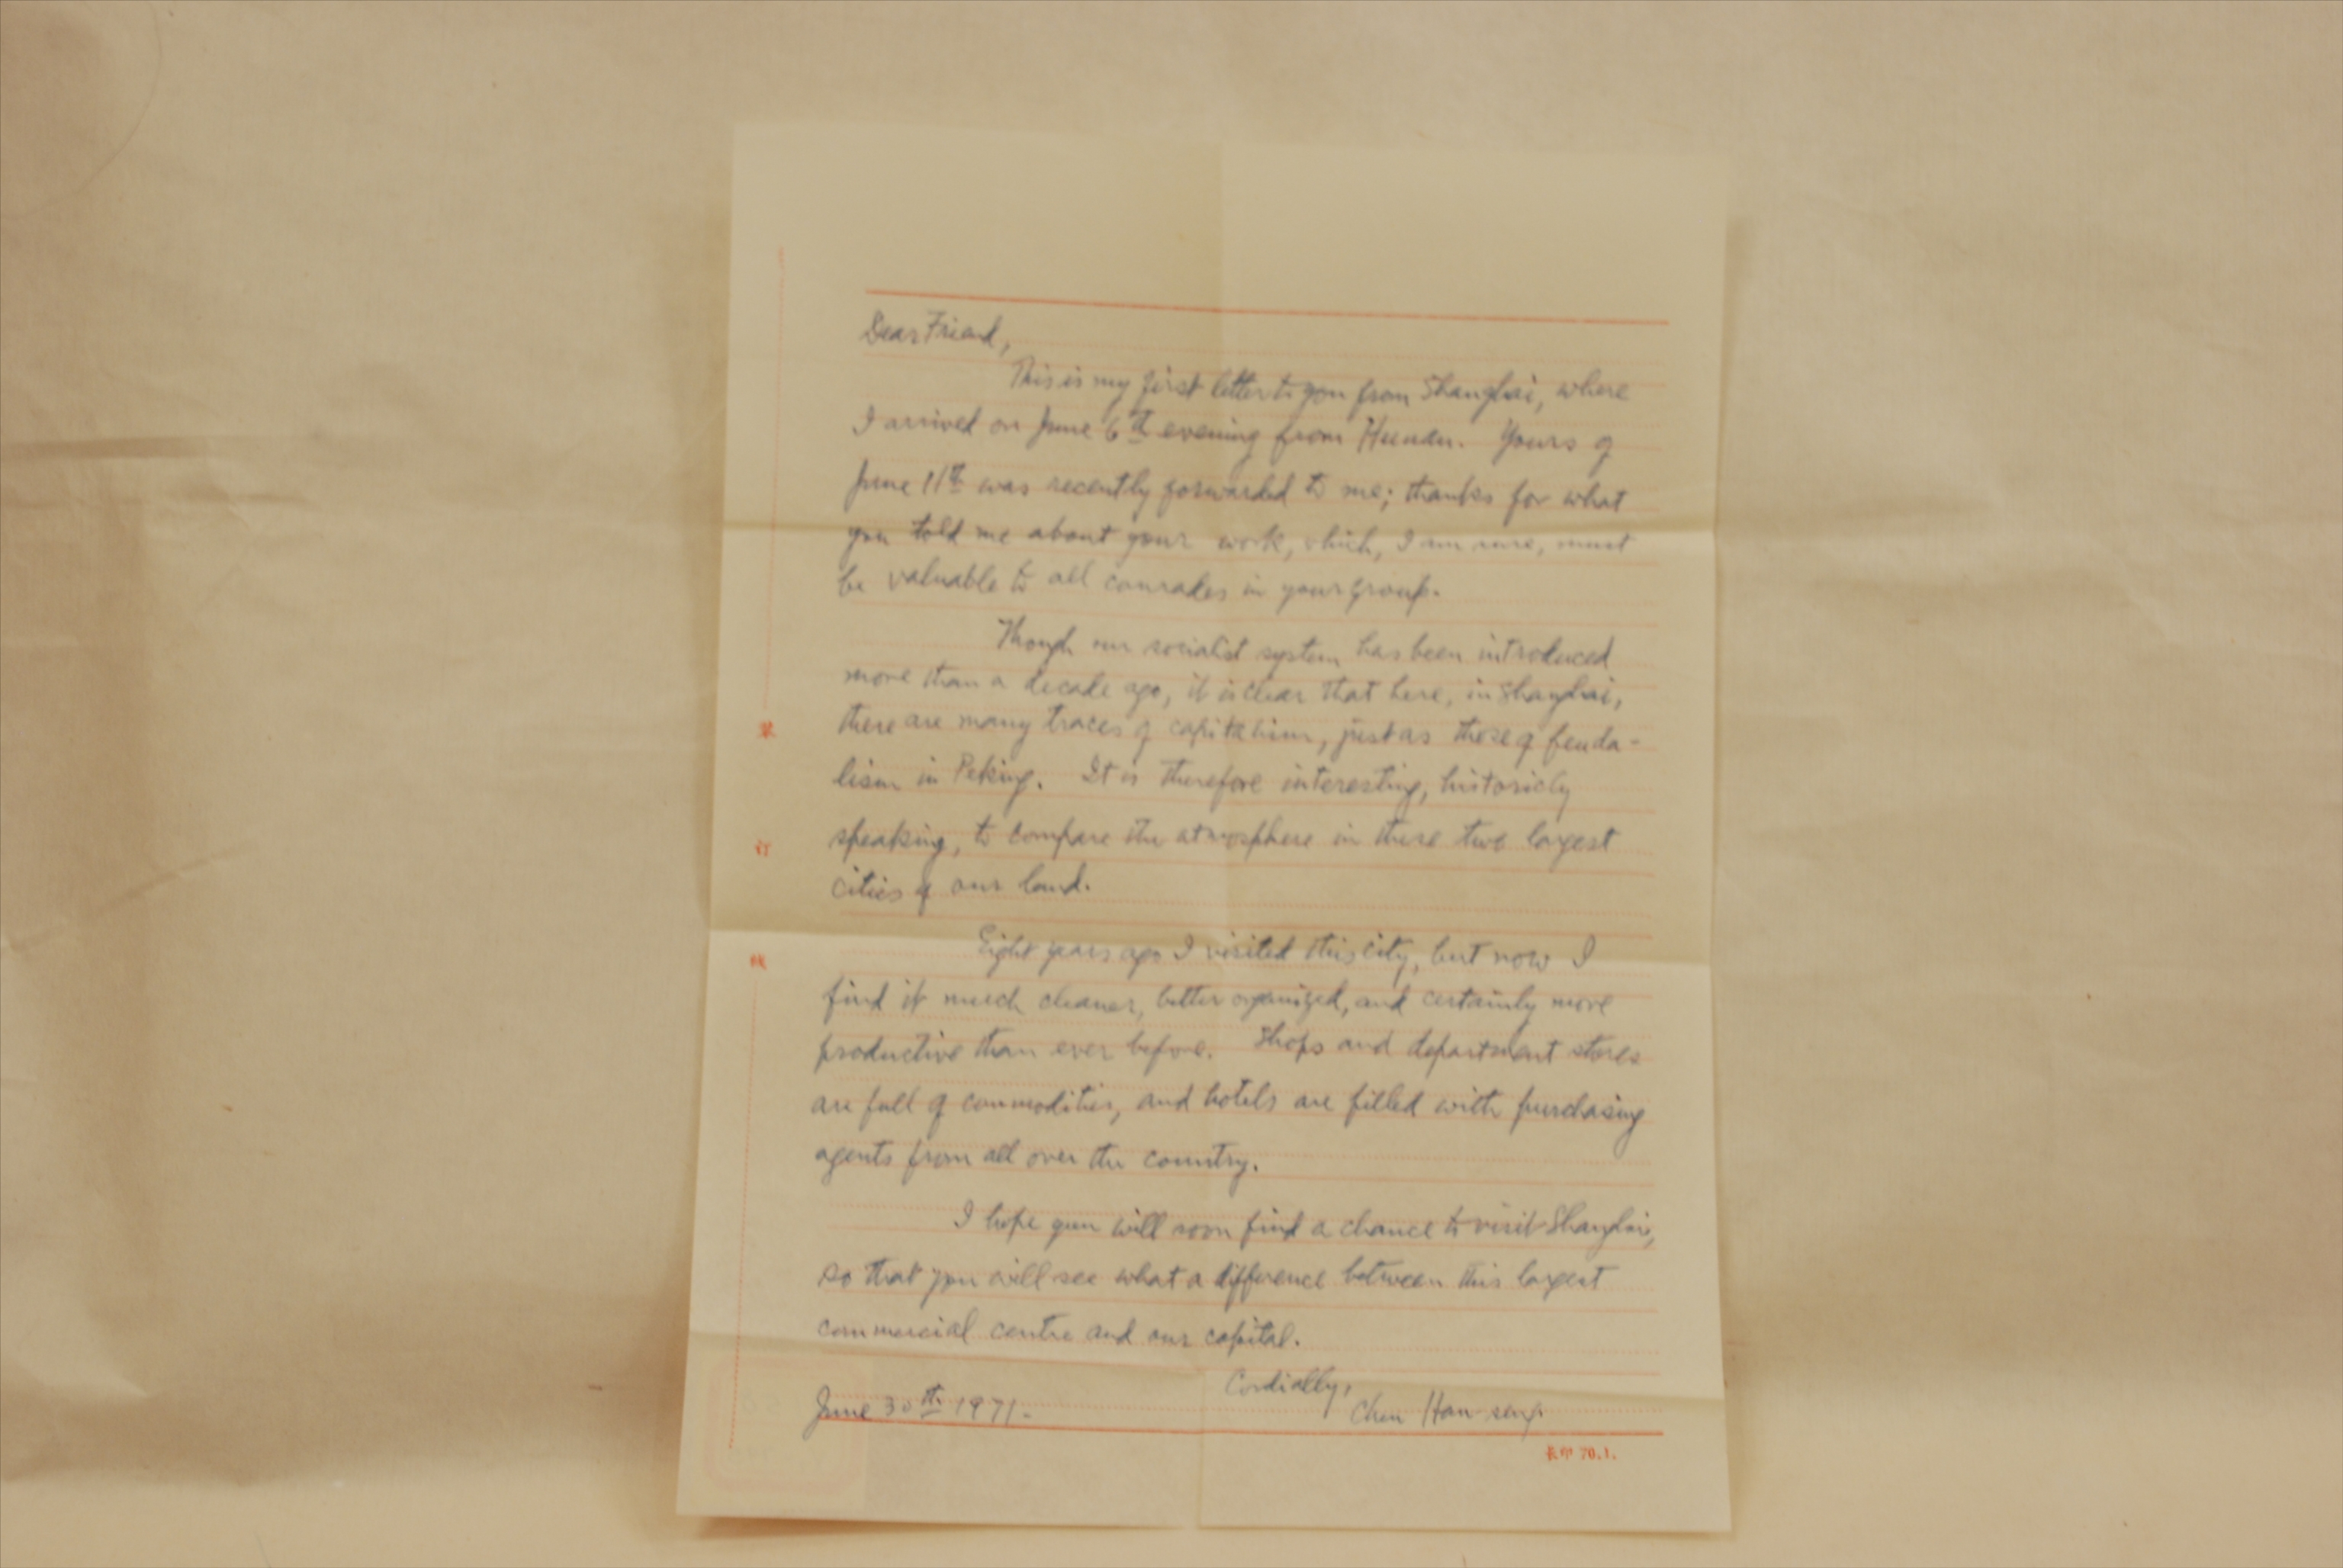 Dear Friend,
This is my first letter to you from Shanghai, where
I arrived on June 6th evening from Hunan. Yours of
June 11th was recently forwarded to me; thanks for what
you told me about your work, which, I am sure, must
be valuable to all comrades in your group.
Though our socialist system has been introduced
more than a decade ago, it is clear that here, in Shanghai,
there are many traces of capitalism, just as those of feuda-
lism in Peking. It is therefore interesting, historicly
speaking, to compare the atmosphere in these two largest
cities of our land.
Eight years ago I visited this city, but now I
find it much cleaner, better organized, and certainly more
productive than ever before. Shops and department stores
are full of commodities, and hotels are filled with purchasing
agents from all over the country.
I hope you will soon find a chance to visit Shanghai,
so that you will see what a difference between this largest
commercial centre and our capital.
Cordially,
June 30th 1971. Chen Han-seng.
装
订
线
长印 70.1.